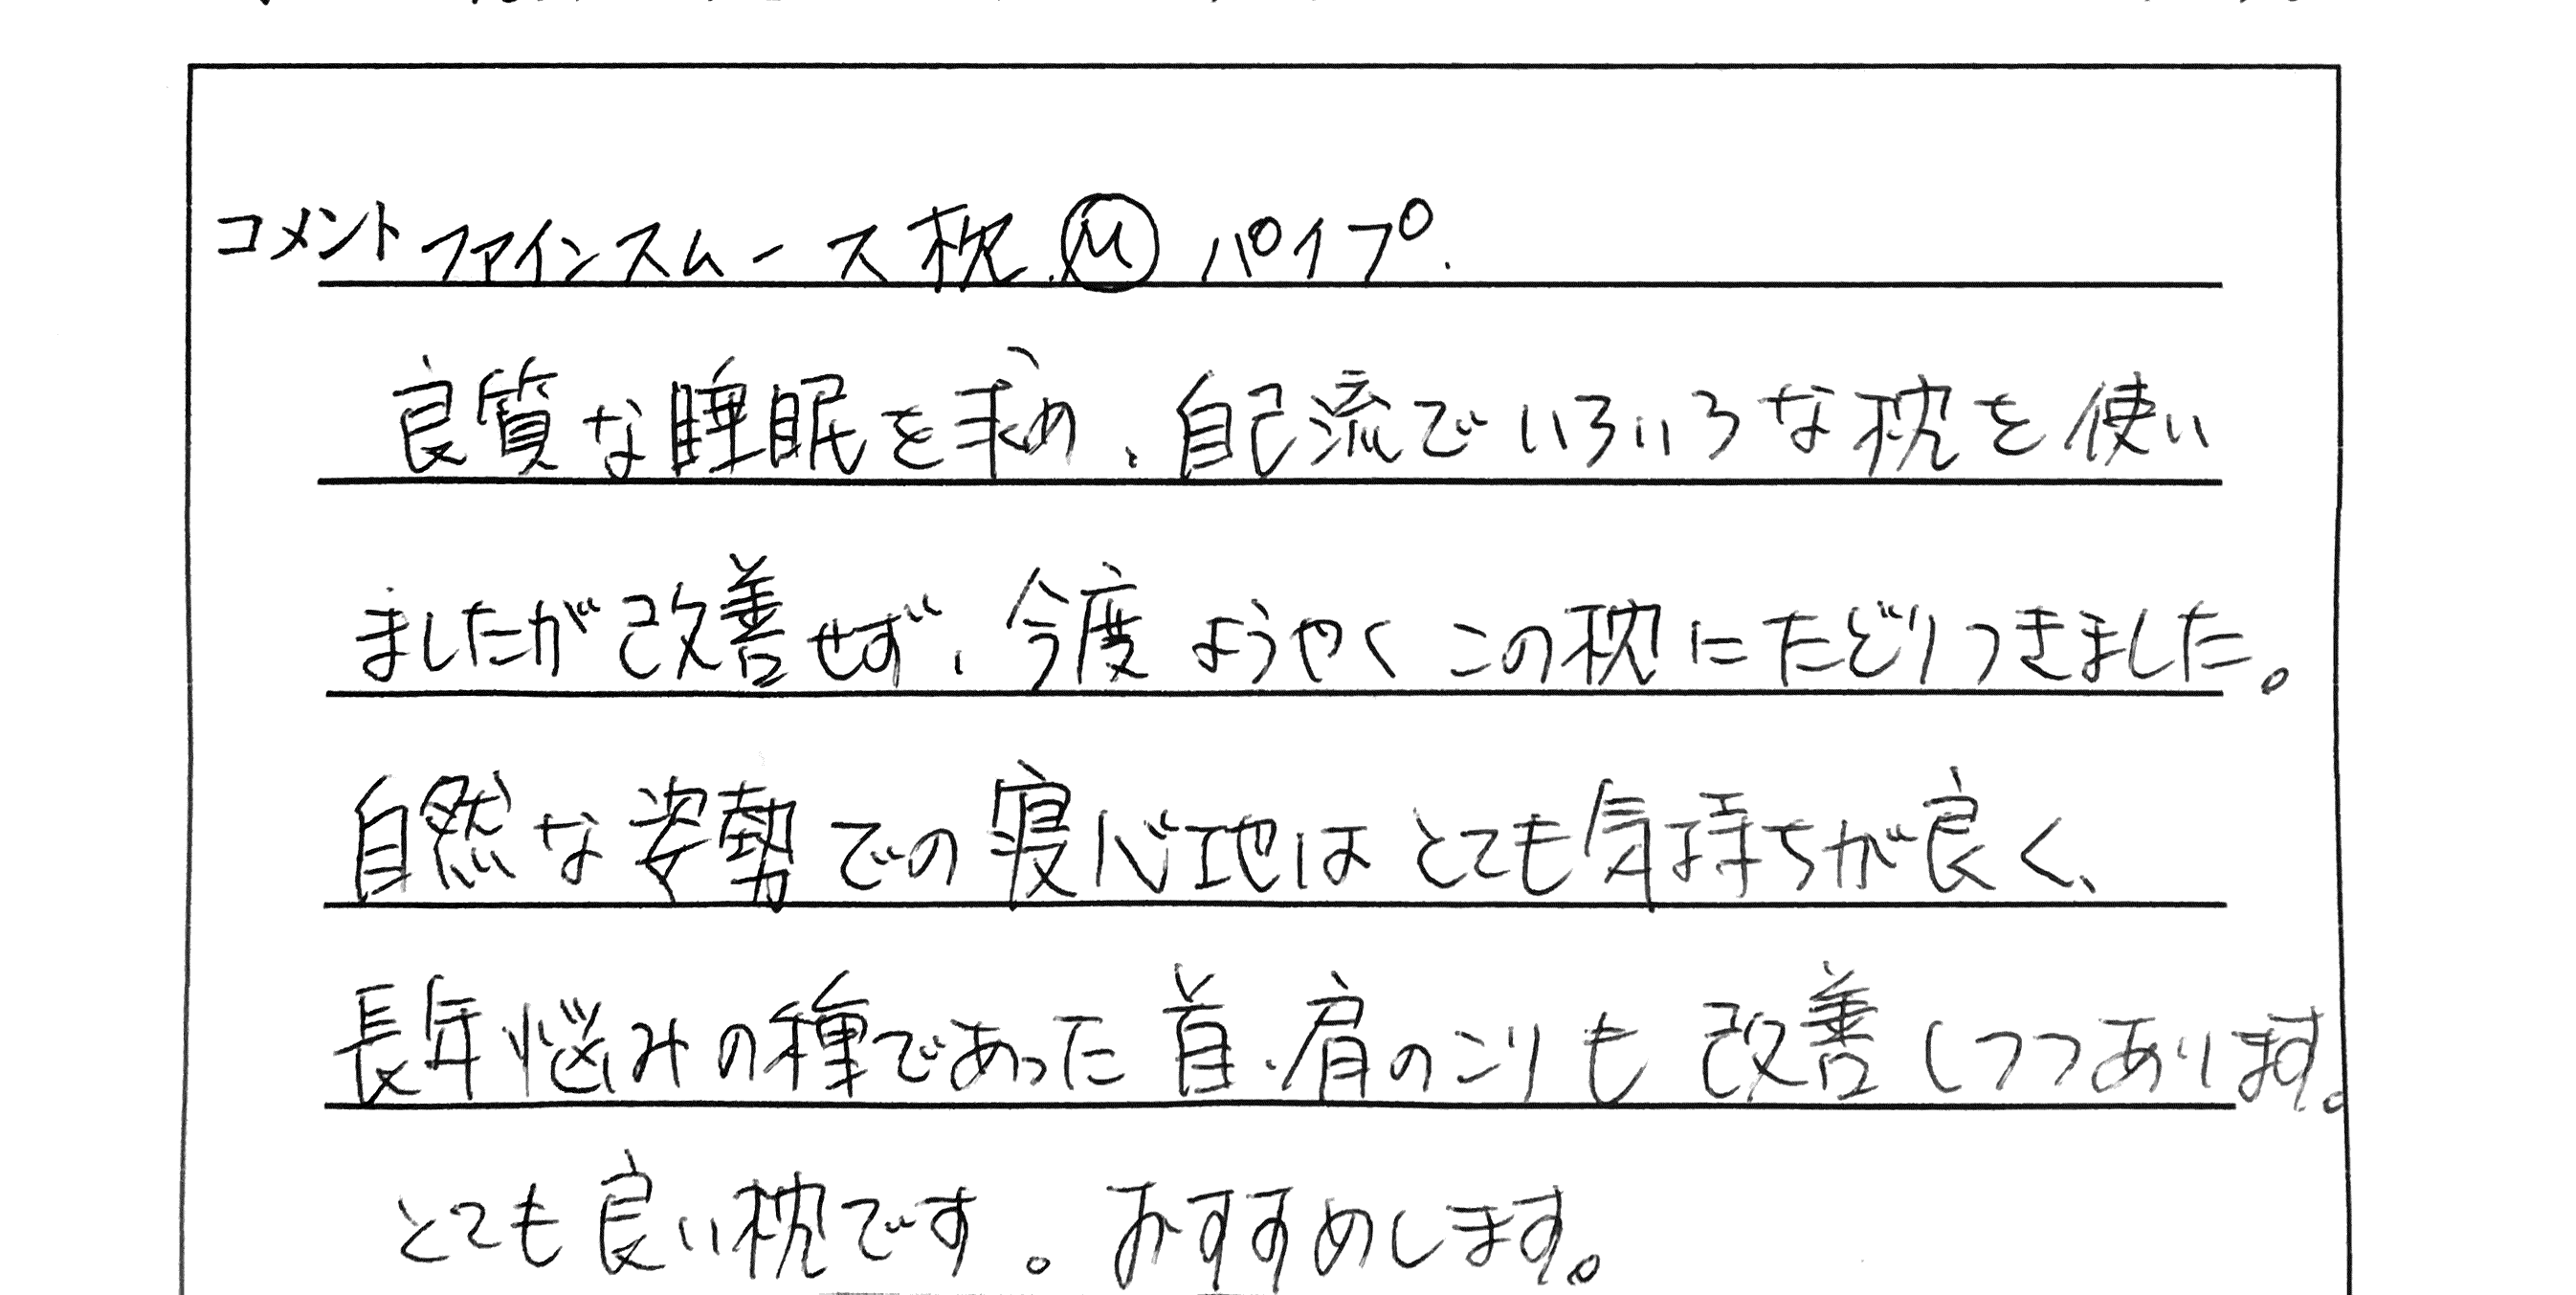 コメント ファインスムース枕 Ⓜ パイプ.
良質な睡眠を求め、自己流でいろいろな枕を使い
ましたが改善せず、今度ようやくこの枕にたどりつきました。
自然な姿勢での寝心地はとても気持ちが良く、
長年悩みの種であった首、肩のこりも改善しつつあります。
とても良い枕です。おすすめします。